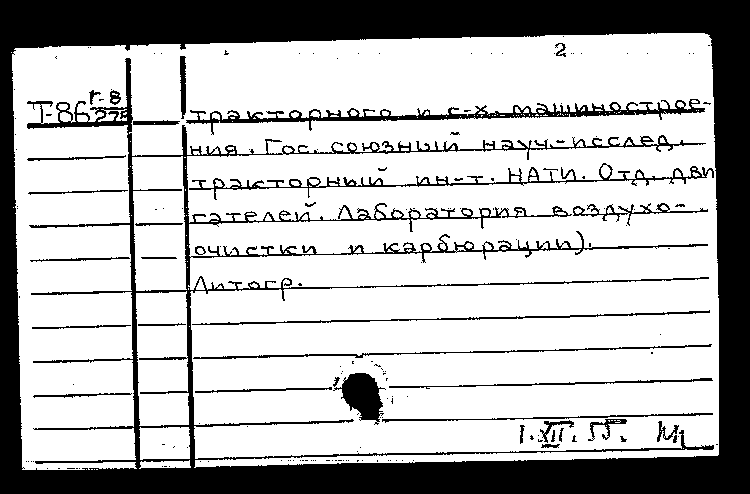 2
Т-86 г-8/275 тракторного и с-х. машинострое-
ния. Гос. союзный науч.-исслед.
тракторный ин-т. НАТИ. Отд. дви
гателей. Лаборатория воздухо-
очистки и карбюрации).
Литогр.
1.XII.55.